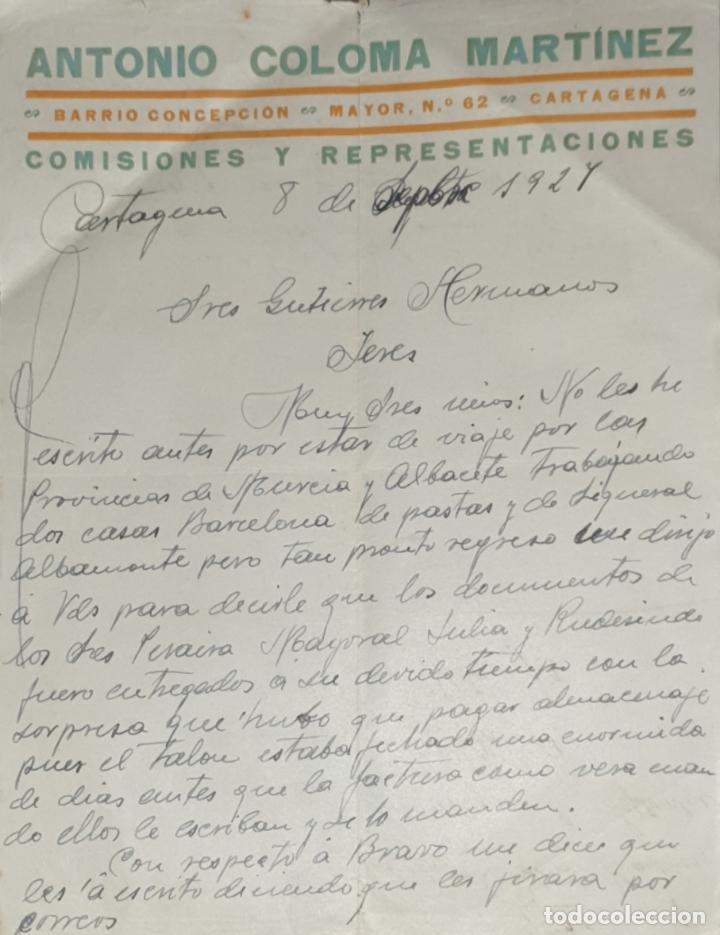 ANTONIO COLOMA MARTÍNEZ
BARRIO CONCEPCIÓN MAYOR, N.º 62 CARTAGENA
COMISIONES Y REPRESENTACIONES
Cartagena 8 de Sepbre 1927
Sres Gutierres Hermanos
Jeres
Muy Sres mios: No les he
escrito antes por estar de viaje por las
Provincias de Murcia y Albacete Trabajando
dos casas Barcelona de pastas y de
pero tan pronto regreso me dirijo
á Vds para decirle que los documentos de
los Sres Mayoral Julia y Rudesindo
fuero entregados á su devido tiempo con la
sorpresa que hubo que pagar almacenaje
pues el talon estaba fechado una enormida
de dias antes que la factura como vera cuan
do ellos le escriban y se lo manden.
Con respecto á Bravo me dice que
les á escrito diciendo que les jirara por
correos
todocoleccion